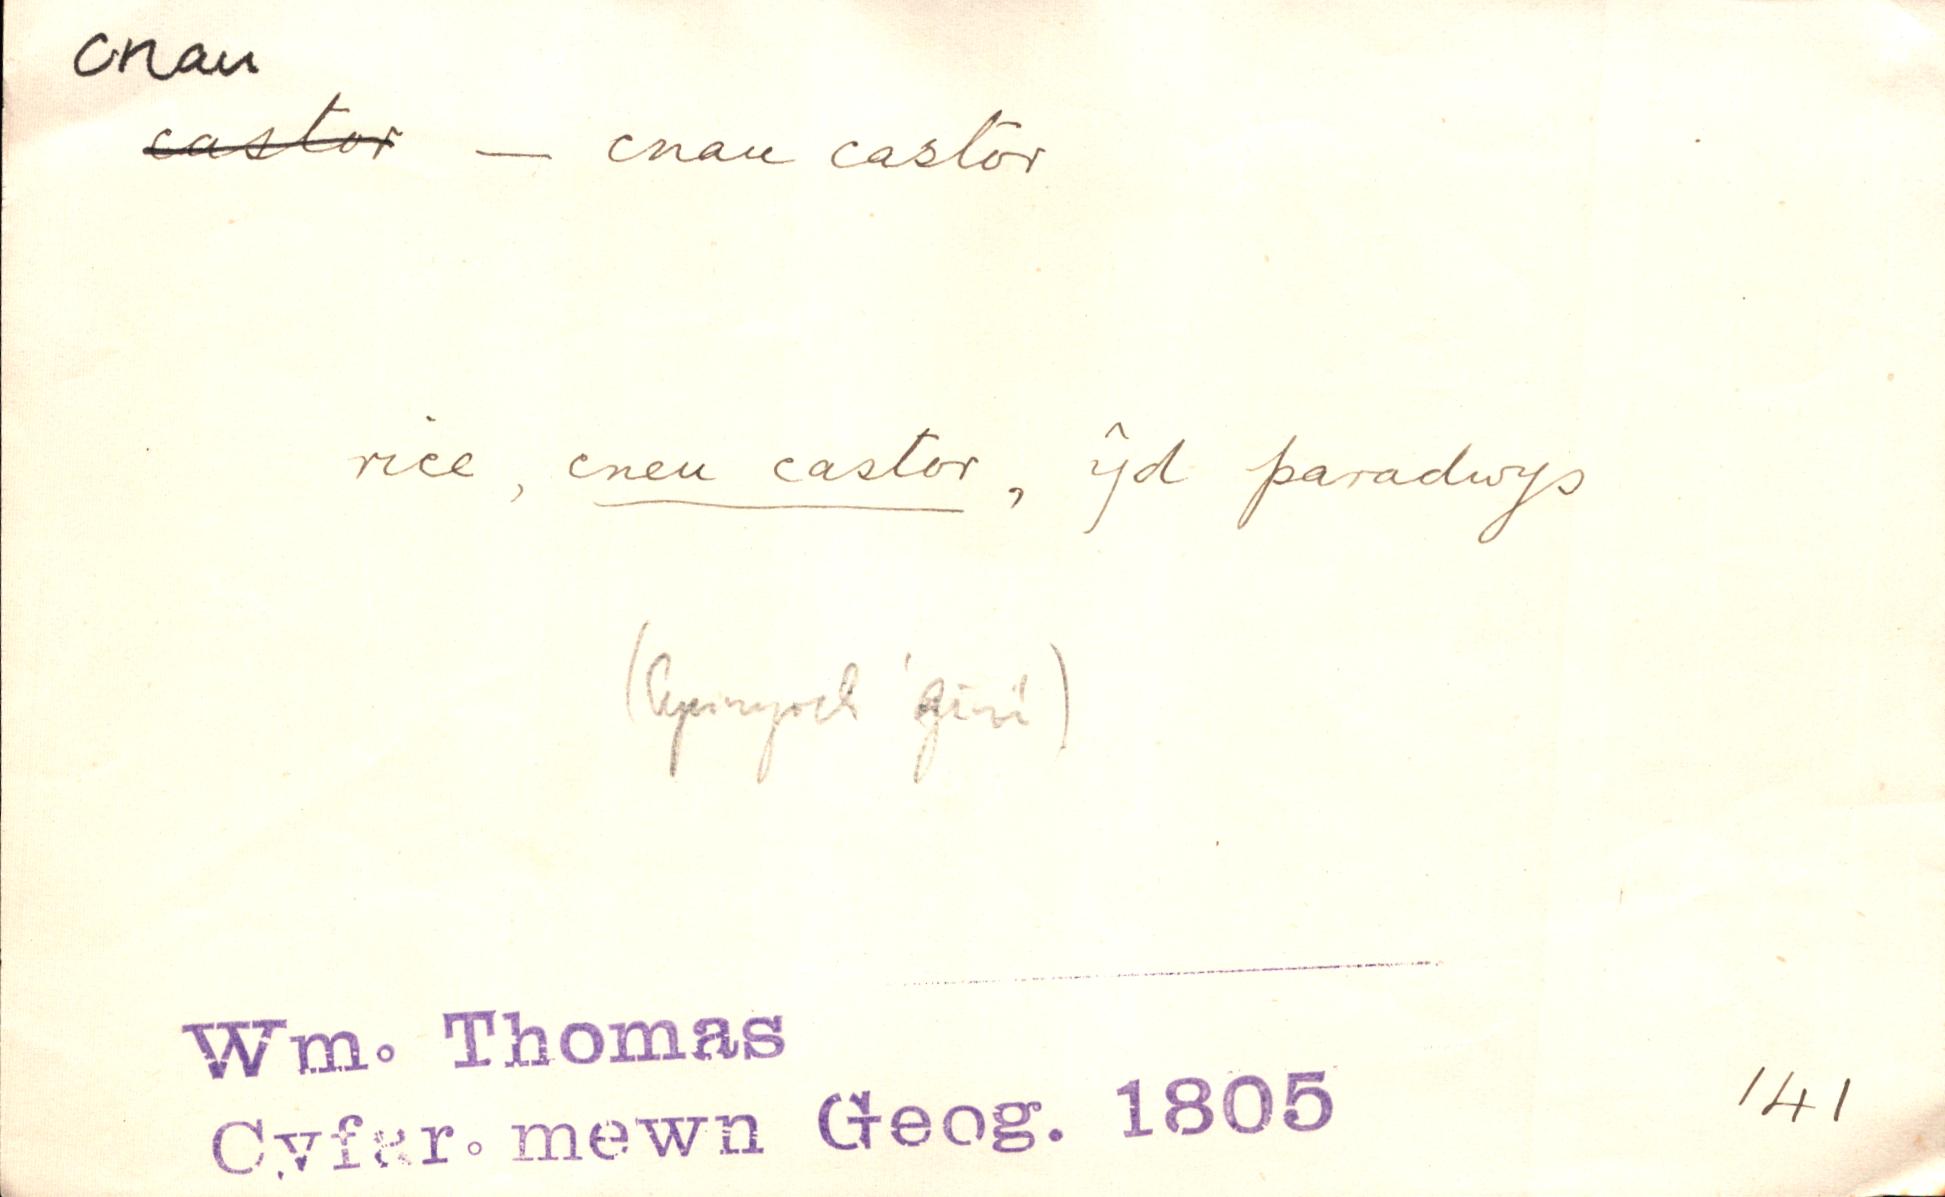 cnau
castor — cnau castor
rice, cneu castor, ŷd paradwys
(Cynnyrch Gini)
Wm. Thomas
Cyfar. mewn Geog. 1805
141